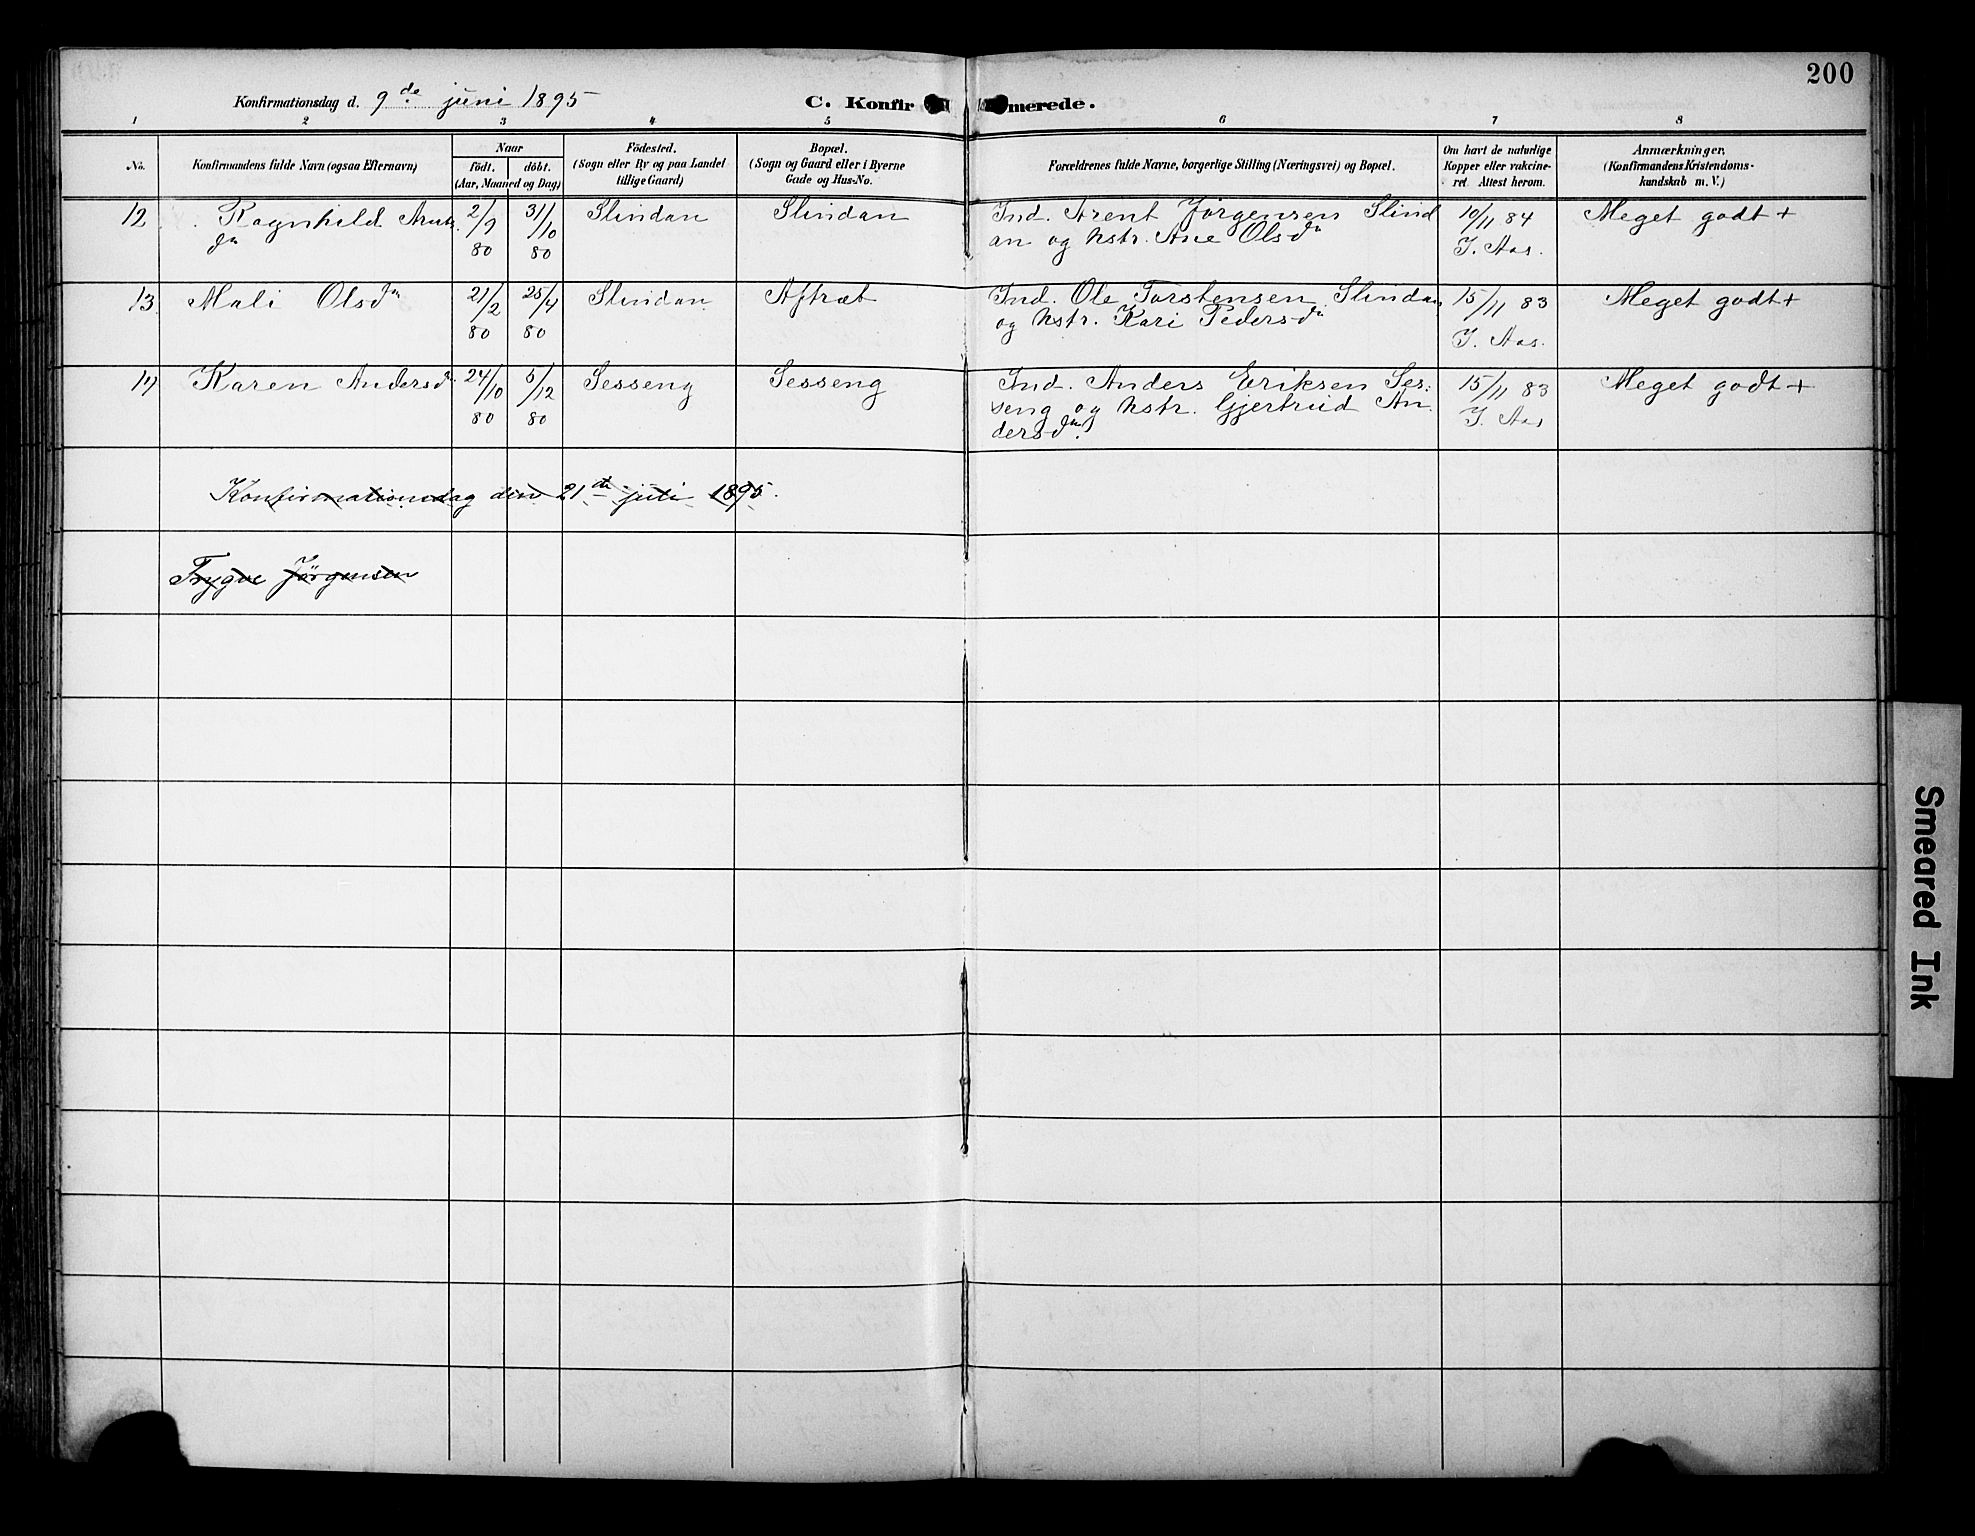 200
Konfirmationsdag d. 9de juni 1895
C. Konfir merede.
1 2 3 4 5 6 7 8
No.
Konfirmandens fulde Navn (ogsaa Efternavn)
Naar
født. døbt.
(Aar, Maaned og Dag)
Fødested.
(Sogn eller By og paa Landet
tillige Gaard)
Bopæl.
(Sogn og Gaard eller i Byerne
Gade og Hus-No.
Forældrenes fulde Navne, borgerlige Stilling (Næringsvei) og Bopæl.
Om havt de naturlige
Kopper eller vakcine-
ret Attest herom.
Anmærkninger.
(Konfirmandens Kristendoms-
kundskab m. V.)
12 Ragnhild Arnts
da
2/9 80
31/10 80
Slindan
Slindan
Ind. Arent Jørgensen Slind
an og Kstr. Ane Olsda
10/11 84
J. Aas.
Meget godt +
13 Mali Olsda
21/2 80
25/4 80
Slindan
Aftræt
Ind. Ole Torstensen Slindan
og Kstr. Kari Pedersda
15/11 83
J. Aas.
Meget godt +
14 Karen Andersda
24/10 80
5/12 80
Sesseng
Sesseng
Ind. Anders Eriksen Ses:
seng og Kstr. Gjertrud An
dersda.
15/11 83
J. Aas
Meget godt +
Konfirmationsdag den 21de juli 1895.
Trygve Jørgensen
Smeared Ink